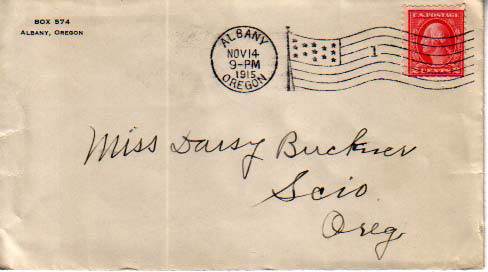 BOX 574
ALBANY, OREGON
ALBANY
NOV 14
9-PM
1915
OREGON
1
U.S. POSTAGE
2 CENTS 2
Miss Daisy Buckner
Scio.
Oreg.